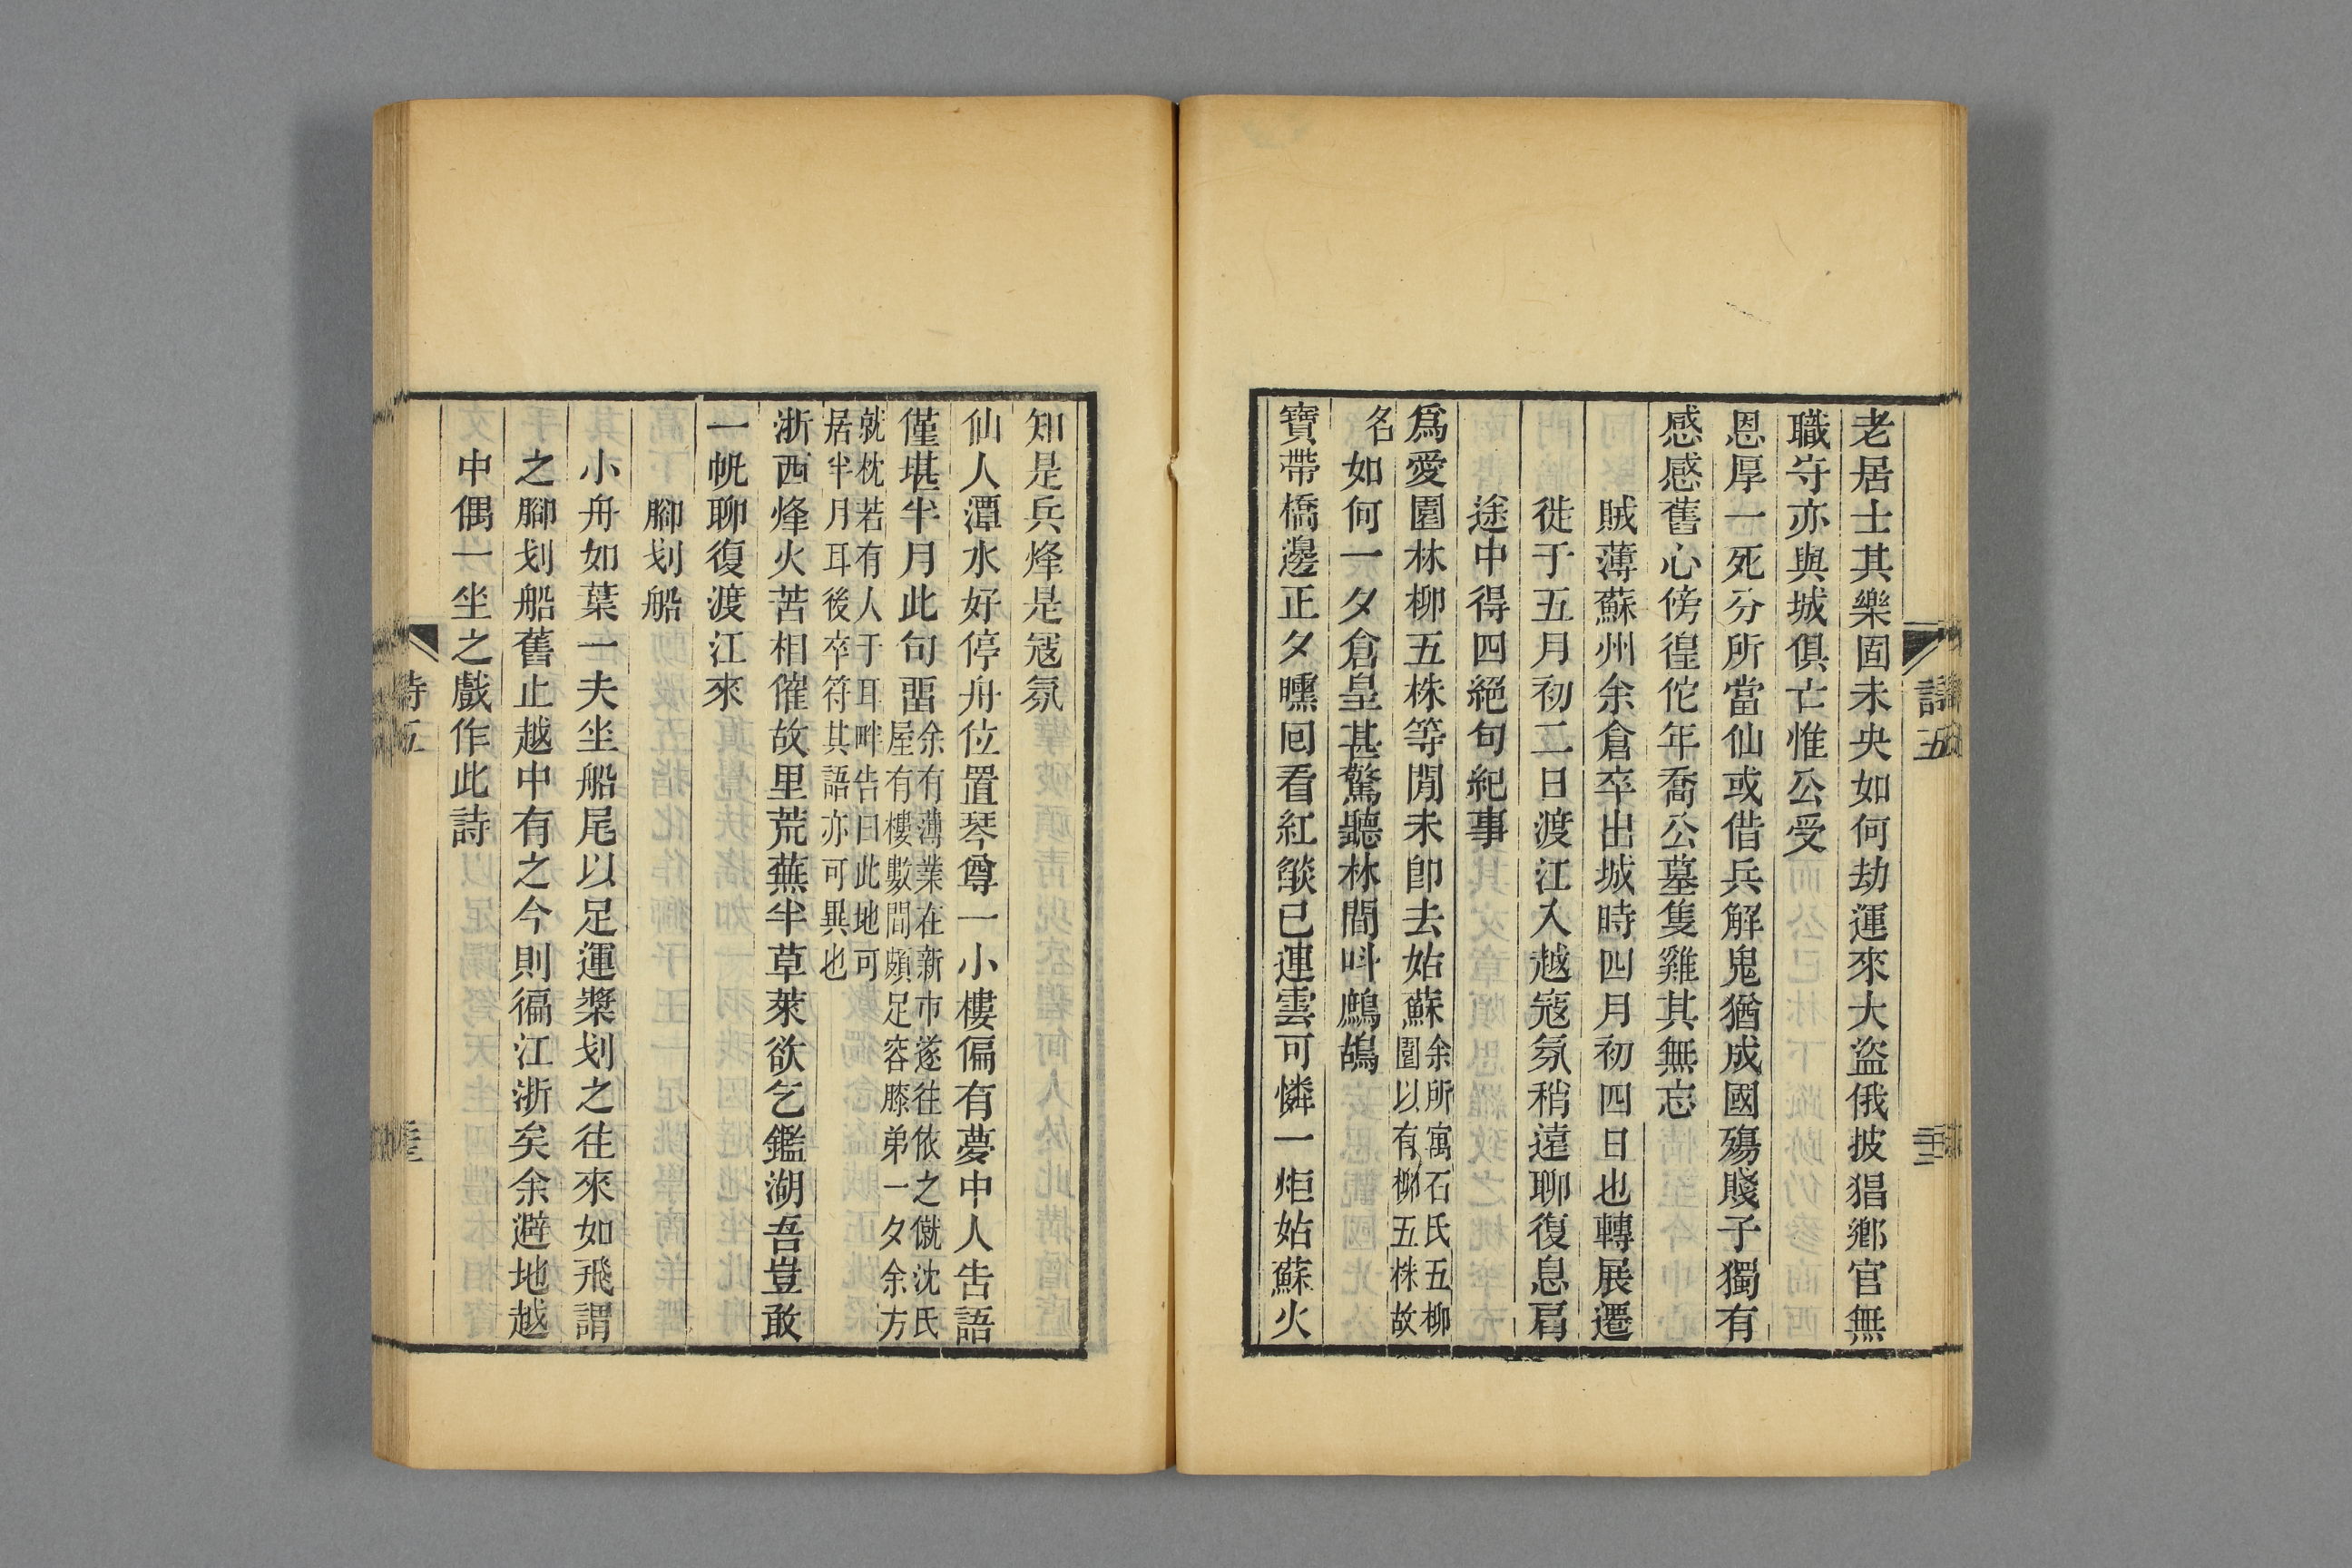 老居士其樂固未央如何劫運來大盜俄披猖鄉官無
職守亦與城俱亡惟公受
恩厚一死分所當仙或借兵解鬼猶成國殤賤子獨有
感感舊心傍徨佗年喬公墓隻雞其無忘
賊薄蘇州余倉卒出城時四月初四日也轉展遷
徙于五月初二日渡江入越寇氛稍遠聊復息肩
途中得四絕句紀事
爲愛園林柳五株等閒未卽去姑蘇余所寓石氏五柳
園以有柳五株故
名如何一夕倉皇甚驚聽林間呌鷓鴣
寶帶橋邊正夕曛囘看紅燄已連雲可憐一炬姑蘇火
詩五
知是兵烽是寇氛
仙人潭水好停舟位置琴尊一小樓偏有夢中人告語
僅堪半月此句畱余有薄業在新市遂往依之僦沈氏
屋有樓數間頗足容膝弟一夕余方
就枕若有人于耳畔告曰此地可
居半月耳後卒符其語亦可異也
浙西烽火苦相催故里荒蕪半草萊欲乞鑑湖吾豈敢
一帆聊復渡江來
腳划船
小舟如葉一夫坐船尾以足運槳划之往來如飛謂
之腳划船舊止越中有之今則徧江浙矣余避地越
中偶一坐之戲作此詩
詩五